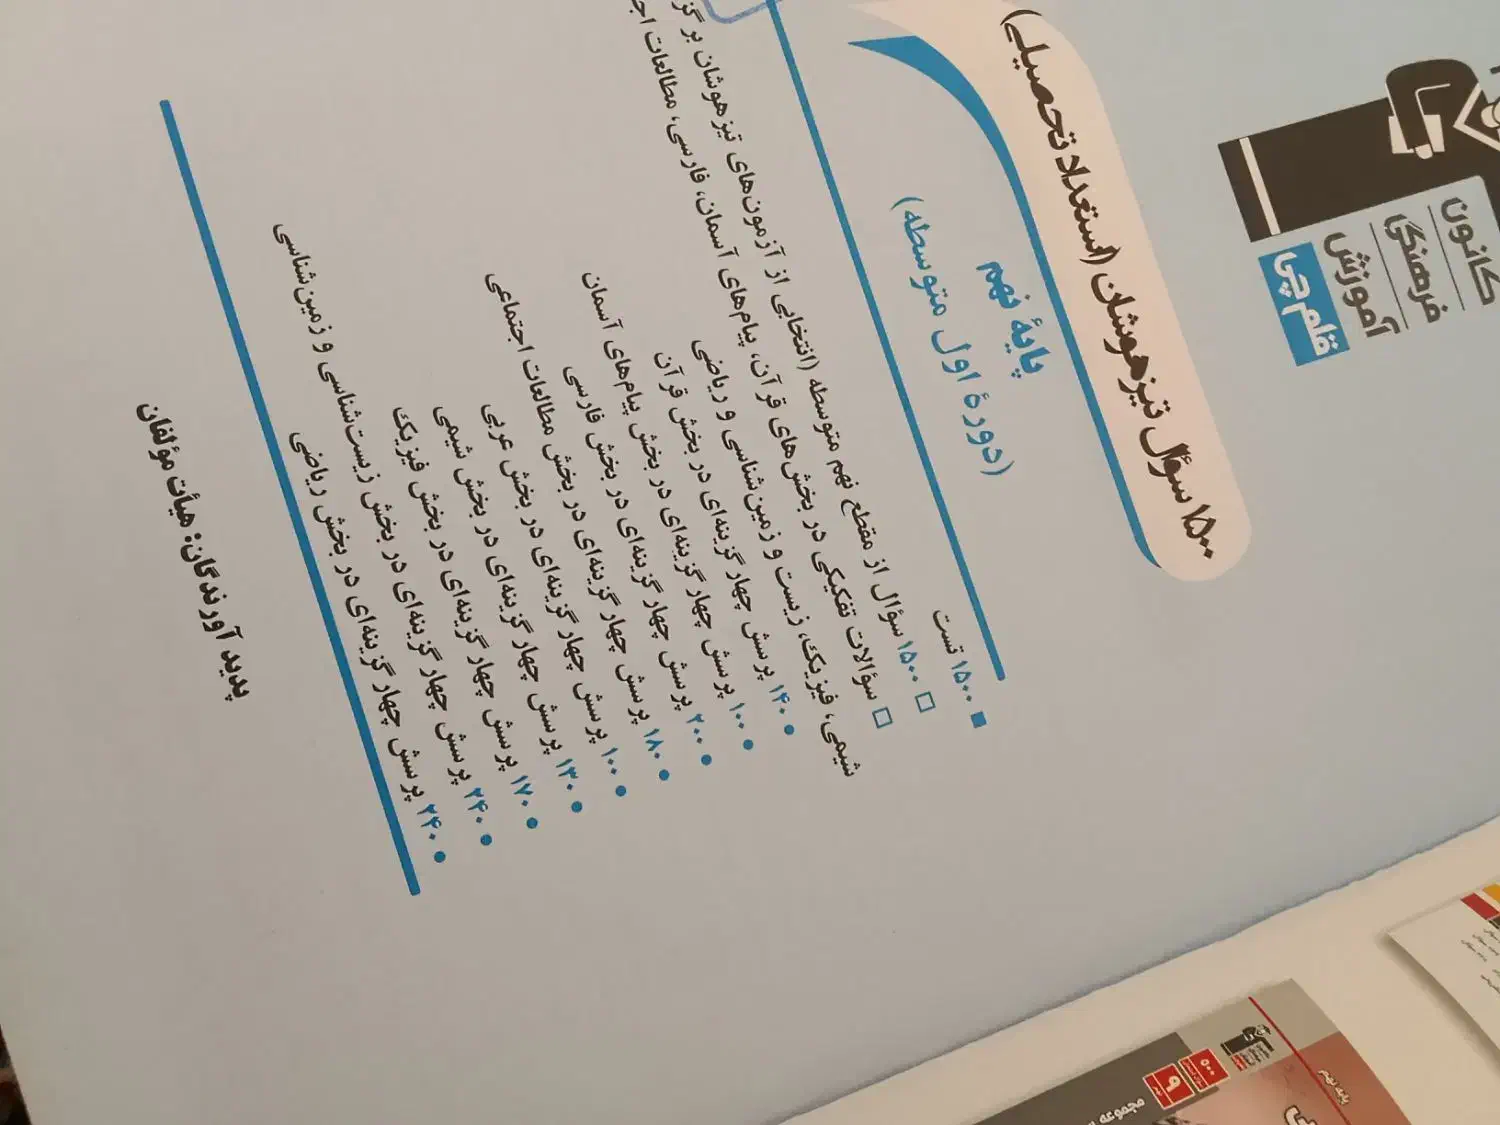 کانون
فرهنگی
آموزش
قلم‌چی
۱۵۰۰ سؤال تیزهوشان (استعداد تحصیلی)
پایهٔ نهم
(دورهٔ اول متوسطه)
■ ۱۵۰۰ تست
□ ۱۵۰۰ سؤال از مقطع نهم متوسطه (انتخابی از آزمون‌های تیزهوشان
□ سؤالات تفکیکی در بخش‌های قرآن، پیام‌های آسمان، فارسی، مطالعات
شیمی، فیزیک، زیست و زمین‌شناسی و ریاضی
• ۱۴۰ پرسش چهار گزینه‌ای در بخش قرآن
• ۱۰۰ پرسش چهار گزینه‌ای در بخش پیام‌های آسمان
• ۲۰۰ پرسش چهار گزینه‌ای در بخش فارسی
• ۱۸۰ پرسش چهار گزینه‌ای در بخش مطالعات اجتماعی
• ۱۰۰ پرسش چهار گزینه‌ای در بخش عربی
• ۱۳۰ پرسش چهار گزینه‌ای در بخش شیمی
• ۱۷۰ پرسش چهار گزینه‌ای در بخش فیزیک
• ۲۴۰ پرسش چهار گزینه‌ای در بخش زیست‌شناسی و زمین‌شناسی
• ۲۴۰ پرسش چهار گزینه‌ای در بخش ریاضی
پدیدآورندگان: هیأت مؤلفان
پایه نهم
۵۰۰
۹
مجموعه